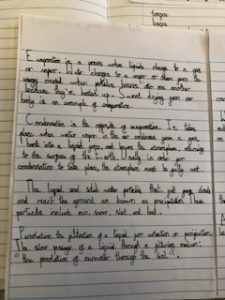 tongue
Evaporation is a process when liquids change to a gas
or vapor. Water changes to a vapor or steam from the
energy created when particles bounce into one another
because they're heated up. Sweat drying from our
body is an example of evaporation.
Condensation is the opposite of evaporation. It takes
place when water vapor in the air condenses from a gas
back into a liquid form, and leaves the atmosphere returning
to the surface of the Earth. Sadly, in order for
condensation to take place, the atmosphere must be fully wet.
The liquid and solid water particles that fall from clouds
and reach the ground are known as precipitation. These
particles include rain, snow, sleet, and hail.
Percolation: the filtration of a liquid, for extraction or purification.
The slow passage of a liquid through a filtering medium:
"the percolation of rainwater through the soil."